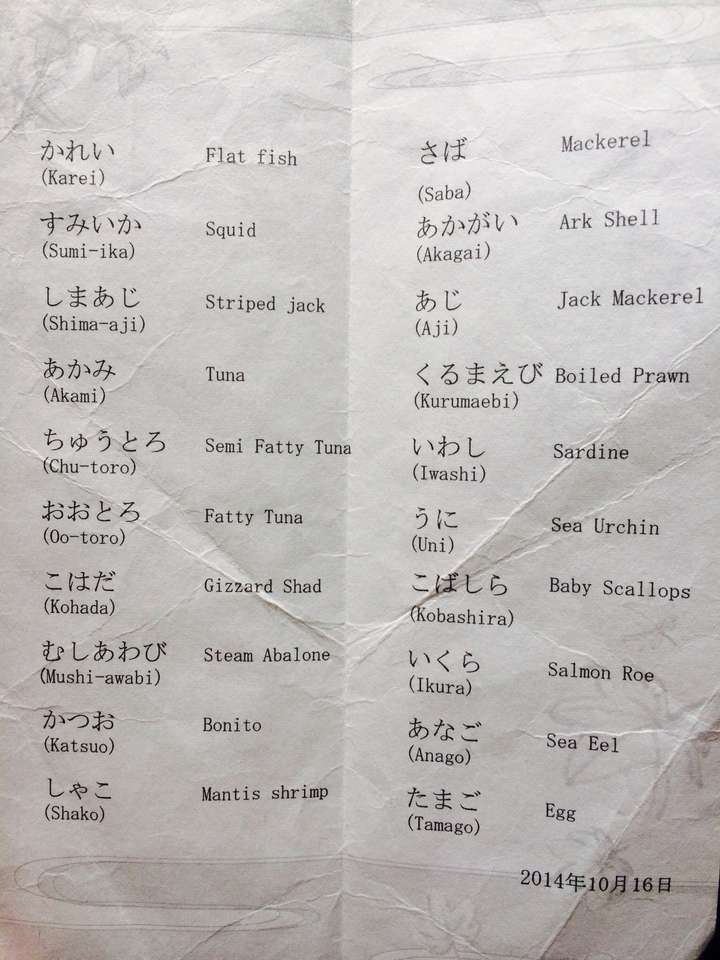 かれい Flat fish
(Karei)
すみいか Squid
(Sumi-ika)
しまあじ Striped jack
(Shima-aji)
あかみ Tuna
(Akami)
ちゅうとろ Semi Fatty Tuna
(Chu-toro)
おおとろ Fatty Tuna
(Oo-toro)
こはだ Gizzard Shad
(Kohada)
むしあわび Steam Abalone
(Mushi-awabi)
かつお Bonito
(Katsuo)
しゃこ Mantis shrimp
(Shako)
さば Mackerel
(Saba)
あかがい Ark Shell
(Akagai)
あじ Jack Mackerel
(Aji)
くるまえび Boiled Prawn
(Kurumaebi)
いわし Sardine
(Iwashi)
うに Sea Urchin
(Uni)
こばしら Baby Scallops
(Kobashira)
いくら Salmon Roe
(Ikura)
あなご Sea Eel
(Anago)
たまご Egg
(Tamago)
2014年10月16日